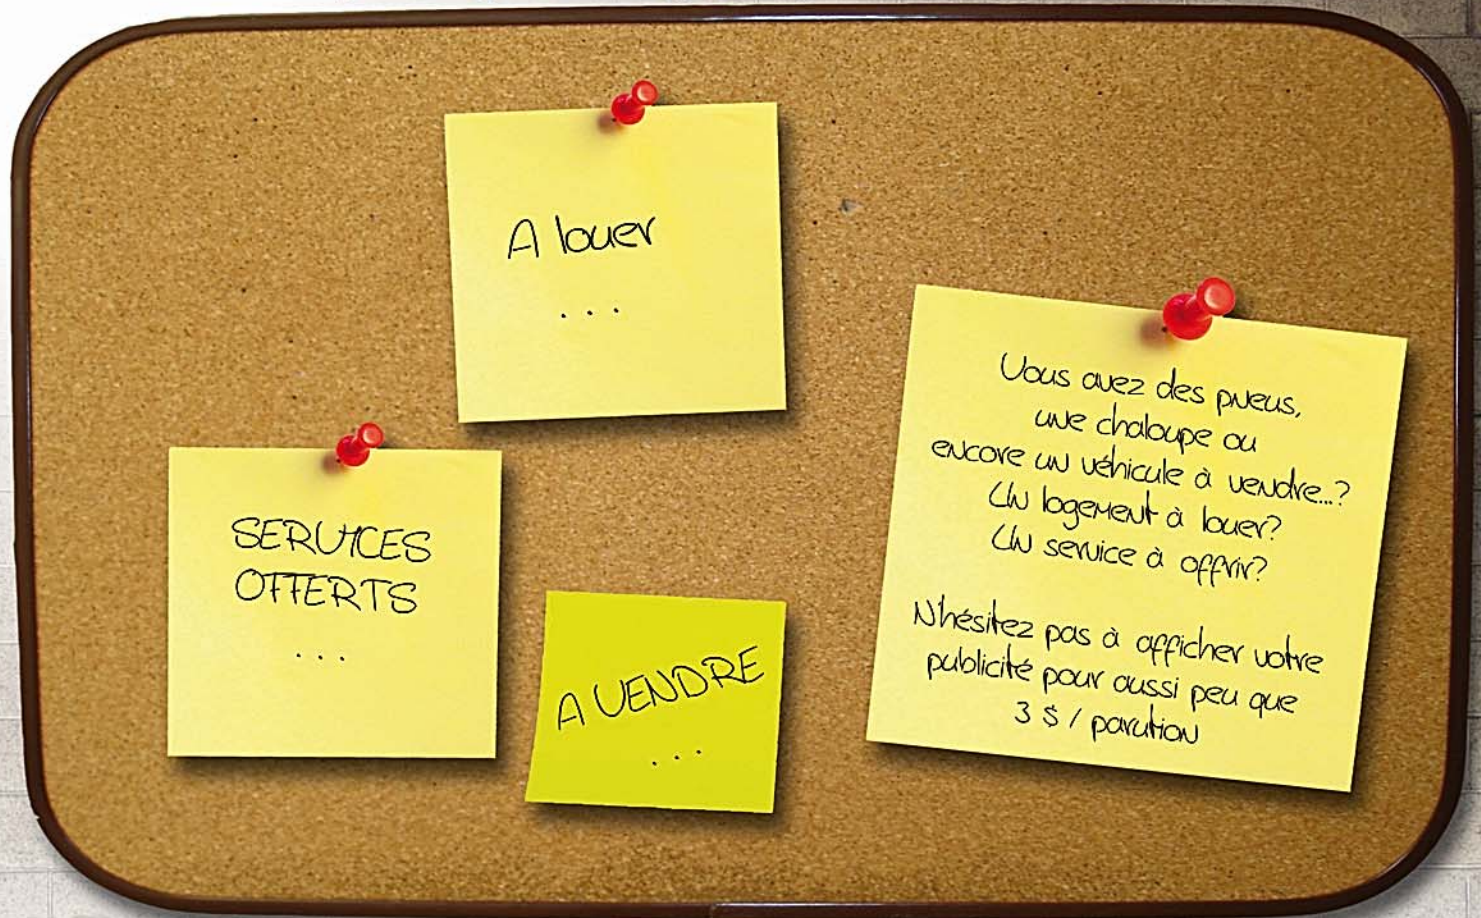 A louer
...
SERVICES
OFFERTS
...
A VENDRE
...
Vous avez des pneus,
une chaloupe ou
encore un véhicule à vendre...?
Un logement à louer?
Un service à offrir?
N'hésitez pas à afficher votre
publicité pour aussi peu que
3 $ / parution